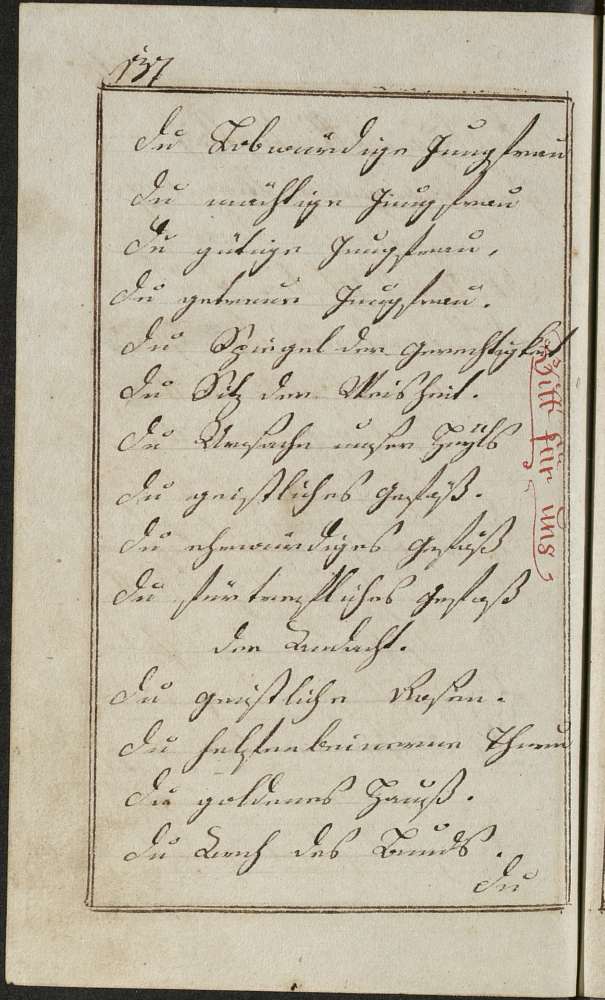 137
du Lobwürdige Jungfrau
du mächtige Jungfrau
du gütige Jungfrau,
du getreue Jungfrau.
du Spiegel der Gerechtigkeit
du Sitz der Weisheit.
du Ursache unser Heyls
du geistliches Gefäß.
du ehrwürdiges Gefäß
du fürtreffliches Gefäß
der Andacht.
du geistliche Rosen.
du helffenbeinerne Thurn
du goldenes Hauß.
du Arch des Bunds.
du
Bitt für uns